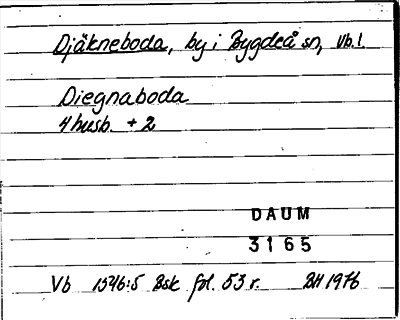 Djäkneboda, by i Bygdeå sn, Vb.l.
Diegnaboda
4 husb. + 2
DAUM
3165
Vb 1546:5 Bsk fol. 53 r. BH 1976